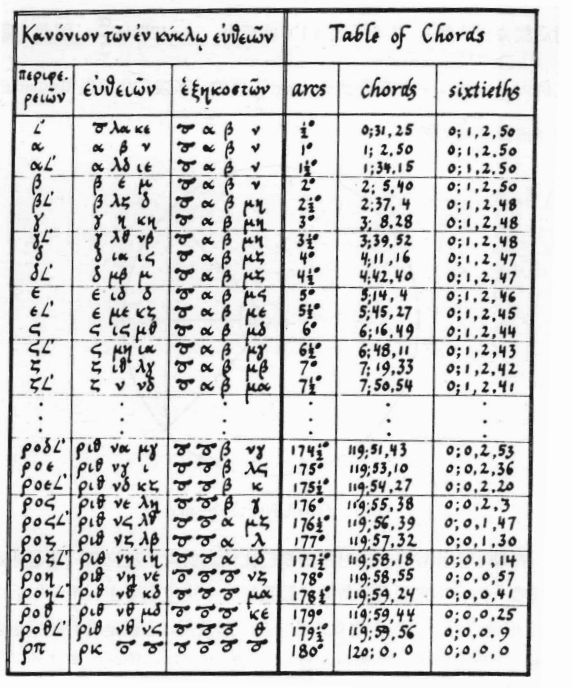 Κανόνιον τῶν ἐν κύκλῳ εὐθειῶν Table of Chords
περιφε-
ρειῶν εὐθειῶν ἑξηκοστῶν arcs chords sixtieths
𐅵 ō λα κε ō α β ν ½° 0;31,25 0;1,2,50
α α β ν ō α β ν 1° 1;2,50 0;1,2,50
α𐅵 α λδ ιε ō α β ν 1½° 1;34,15 0;1,2,50
β β ε μ ō α β ν 2° 2;5,40 0;1,2,50
β𐅵 β λζ δ ō α β μη 2½° 2;37,4 0;1,2,48
γ γ η κη ō α β μη 3° 3;8,28 0;1,2,48
γ𐅵 γ λθ νβ ō α β μη 3½° 3;39,52 0;1,2,48
δ δ ια ις ō α β μζ 4° 4;11,16 0;1,2,47
δ𐅵 δ μβ μ ō α β μζ 4½° 4;42,40 0;1,2,47
ε ε ιδ δ ō α β μς 5° 5;14,4 0;1,2,46
ε𐅵 ε με κζ ō α β με 5½° 5;45,27 0;1,2,45
ς ς ις μθ ō α β μδ 6° 6;16,49 0;1,2,44
ς𐅵 ς μη ια ō α β μγ 6½° 6;48,11 0;1,2,43
ζ ζ ιθ λγ ō α β μβ 7° 7;19,33 0;1,2,42
ζ𐅵 ζ ν νδ ō α β μα 7½° 7;50,54 0;1,2,41
ροδ𐅵 ριθ να μγ ō ō β νγ 174½° 119;51,43 0;0,2,53
ροε ριθ νγ ι ō ō β λς 175° 119;53,10 0;0,2,36
ροε𐅵 ριθ νδ κζ ō ō β κ 175½° 119;54,27 0;0,2,20
ρος ριθ νε λη ō ō β γ 176° 119;55,38 0;0,2,3
ρος𐅵 ριθ νς λθ ō ō α μζ 176½° 119;56,39 0;0,1,47
ροζ ριθ νζ λβ ō ō α λ 177° 119;57,32 0;0,1,30
ροζ𐅵 ριθ νη ιη ō ō α ιδ 177½° 119;58,18 0;0,1,14
ροη ριθ νη νε ō ō ō νζ 178° 119;58,55 0;0,0,57
ροη𐅵 ριθ νθ κδ ō ō ō μα 178½° 119;59,24 0;0,0,41
ροθ ριθ νθ μδ ō ō ō κε 179° 119;59,44 0;0,0,25
ροθ𐅵 ριθ νθ νς ō ō ō θ 179½° 119;59,56 0;0,0,9
ρπ ρκ ō ō ō ō ō ō 180° 120;0,0 0;0,0,0